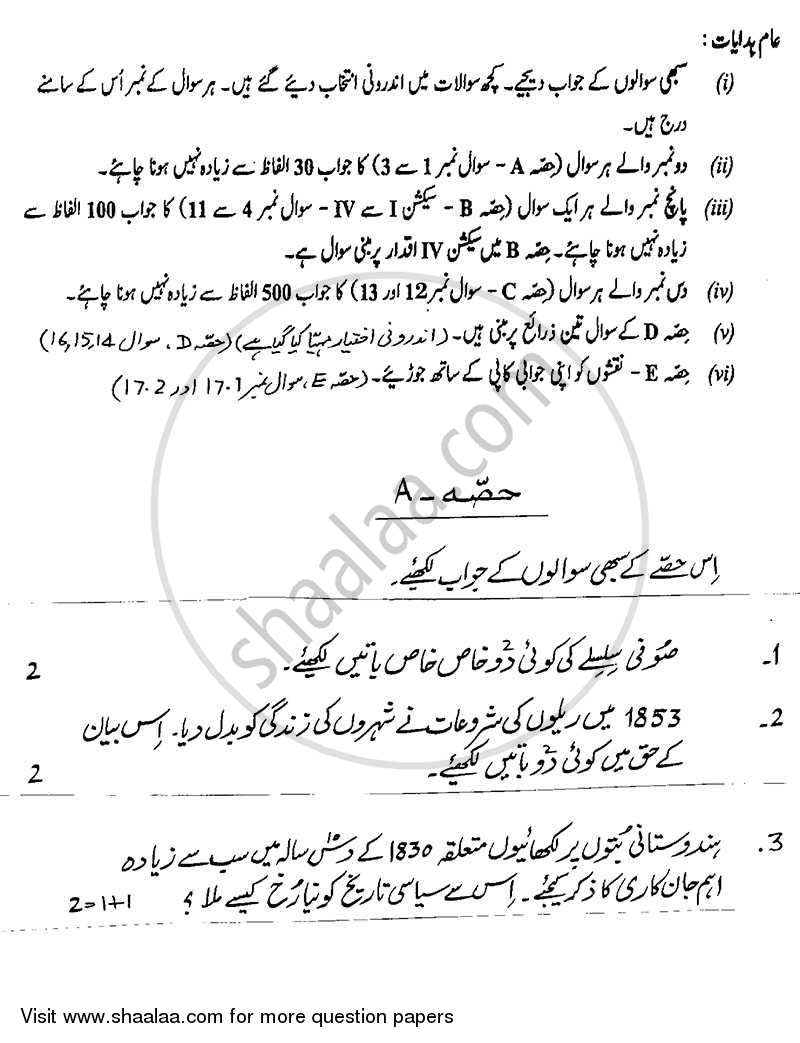 عام ہدایات :
(i) سبھی سوالوں کے جواب دیجیے۔ کچھ سوالات میں اندرونی انتخاب دیئے گئے ہیں۔ ہر سوال کے نمبر اُس کے سامنے
درج ہیں۔
(ii) دو نمبر والے ہر سوال (حصّہ A - سوال نمبر 1 سے 3) کا جواب 30 الفاظ سے زیادہ نہیں ہونا چاہئے۔
(iii) پانچ نمبر والے ہر ایک سوال (حصّہ B - سیکشن I سے IV - سوال نمبر 4 سے 11) کا جواب 100 الفاظ سے
زیادہ نہیں ہونا چاہئے۔ حصّہ B میں سیکشن IV اقدار پر مبنی سوال ہے۔
(iv) دس نمبر والے ہر سوال (حصّہ C - سوال نمبر 12 اور 13) کا جواب 500 الفاظ سے زیادہ نہیں ہونا چاہئے۔
(v) حصّہ D کے سوال تین ذرائع پر مبنی ہیں۔ (اندرونی اختیار مہیّا کیا گیا ہے) (حصّہ D، سوال 16,15,14)
(vi) حصّہ E - نقشوں کو اپنی جوابی کاپی کے ساتھ جوڑیئے۔ (حصّہ E، سوال نمبر 17.1 اور 17.2)
حصّہ - A
اِس حصّے کے سبھی سوالوں کے جواب لکھئے۔
1- صُوفی سِلسِلے کی کوئی دو خاص خاص باتیں لکھئے۔ 2
2- 1853 میں ریلوں کی شروعات نے شہروں کی زندگی کو بدل دیا۔ اِس بیان
کے حق میں کوئی دو باتیں لکھئے۔ 2
3. ہندوستانی بُتوں پر لکھائیوں متعلقہ 1830 کے دس سالہ میں سب سے زیادہ
اہم جان کاری کا ذکر کیجئے۔ اِس سے سیاسی تاریخ کو نیا رُخ کیسے ملا ؟ 2=1+1
shaalaa.com
Visit www.shaalaa.com for more question papers